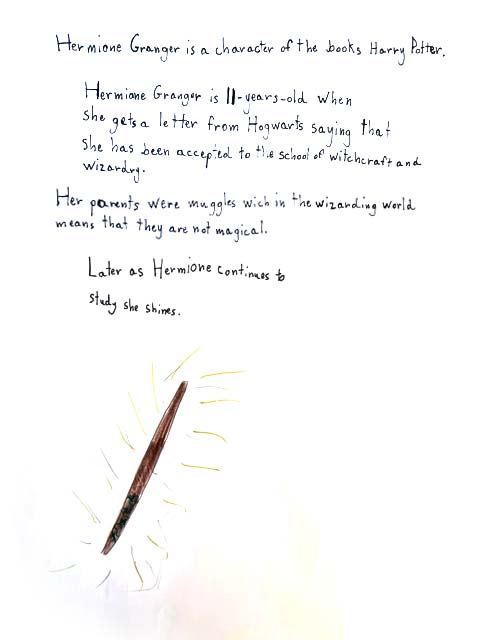 Hermione Granger is a character of the books Harry Potter.
Hermione Granger is 11-years-old when
she gets a letter from Hogwarts saying that
she has been accepted to the school of witchcraft and
wizardry.
Her parents were muggles wich in the wizarding world
means that they are not magical.
Later as Hermione continues to
study she shines.